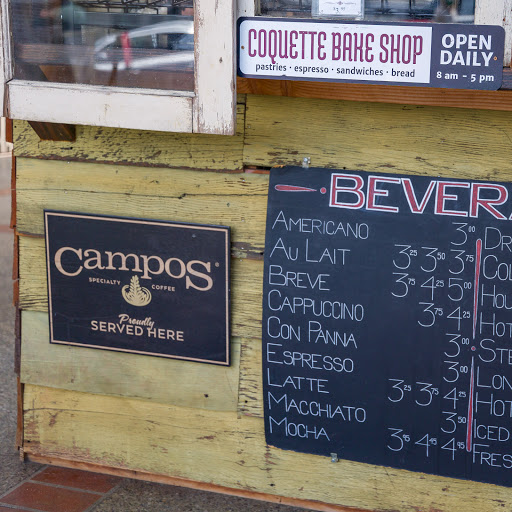 COQUETTE BAKE SHOP
pastries · espresso · sandwiches · bread
OPEN
DAILY
8 am - 5 pm
CAMPOS®
SPECIALTY COFFEE
Proudly
SERVED HERE
BEVER
AMERICANO 3.00
AU LAIT 3.25 3.50 3.75
BREVE 3.75 4.25 5.00
CAPPUCCINO 3.75 4.25
CON PANNA 3.00
ESPRESSO 3.00
LATTE 3.25 3.75 4.25
MACCHIATO 3.50
MOCHA 3.95 4.45 4.95
ICED